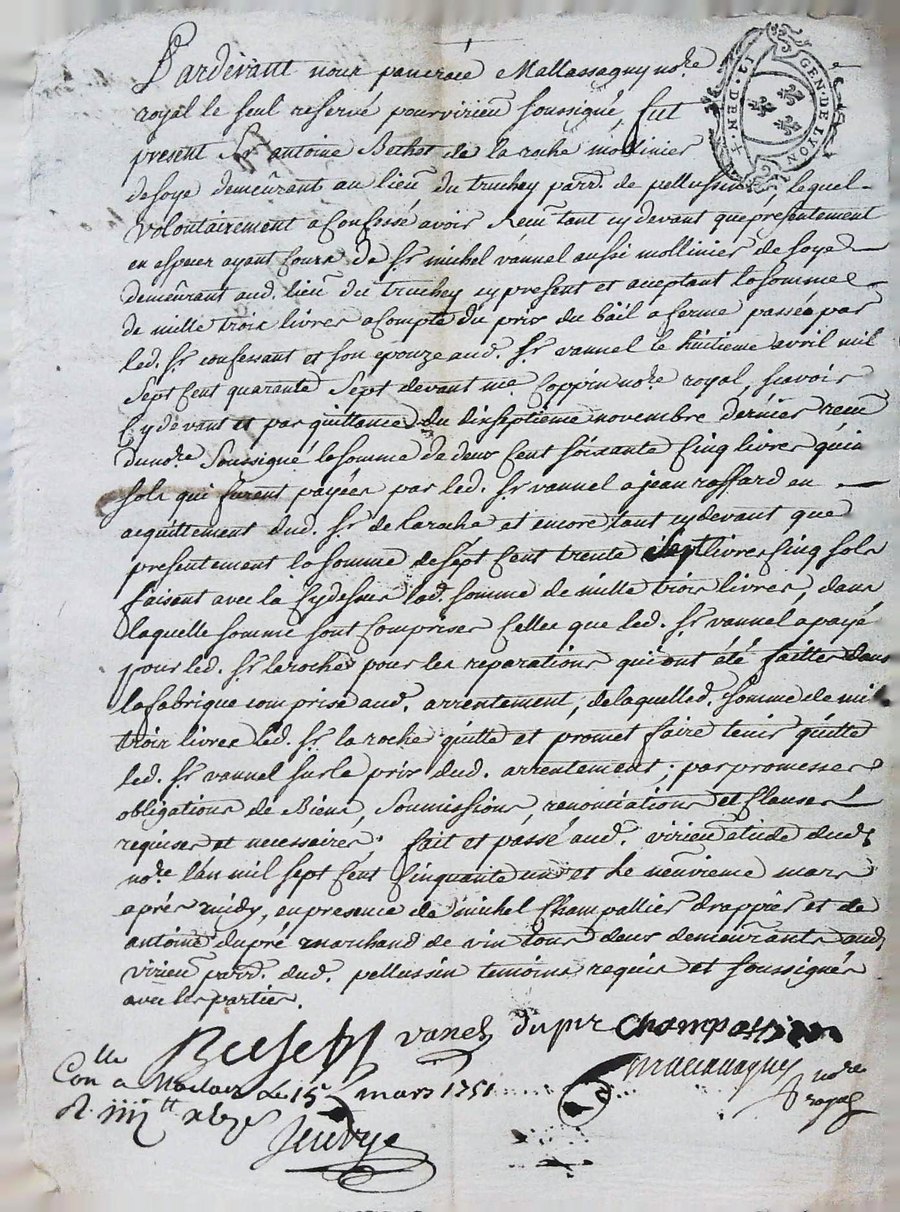 GEN. DE LYON
12. DEN
Pardevant nous pancrace Mallassagny no.re
royal le seul reservé pour virieu soussigné, fut
present Sr. antoine Bethet de la roche mollinier
de soye demeurant au lieu du truchey parr. de pellussin, lequel
volontairement a confessé avoir Receu tant cy devant que presentement
en espece ayant cours de Sr. michel vannel aussi mollinier de soye
demeurant aud. lieu du truchey cy present et acceptant la somme
de mille trois livres acompte du prix du bail a ferme passée par
led. Sr. confessant et son epouze aud. Sr. vannel le huitieme avril mil
sept cent quarante sept devant me Coppin no.re royal, scavoir
Cydevant et par quittance du dixseptieme novembre dernier receu
du no.re soussigné la somme de deux cent soixante cinq livres quin
sols qui furent payées par led. Sr. vannel a jean roffard en
acquittement dud. Sr. de la roche et encore tant cy devant que
presentement la somme de sept cent trente sept livres cinq sols
faisant avec la Cydessus lad. somme de mille trois livres, dans
laquelle somme sont comprises celles que led. Sr. vannel a payé
pour led. Sr. laroche pour les reparations qui ont été faittes dans
la fabrique comprise aud. arrentement; de laquelle d. somme de mil
trois livres led. Sr. la roche quitte et promet faire tenir quitte
led. Sr. vannel sur le prix dud. arrentement; par promesses
obligations de Biens, soumissions, renonciations et clauses
requises et necessaires. fait et passé aud. virieu etude dud.
no.re l'an mil sept cent cinquante un et le neuvieme mars
aprés midy, en presence de michel Champallier drappier et de
antoine dupré marchand de vin tous deux demeurants aud.
virieu parr. dud. pellussin temoins requis et soussignés
avec les parties.
vanel dupre Champallier
no.re
royal
Con.lle a Maclas le 15 mars 1751